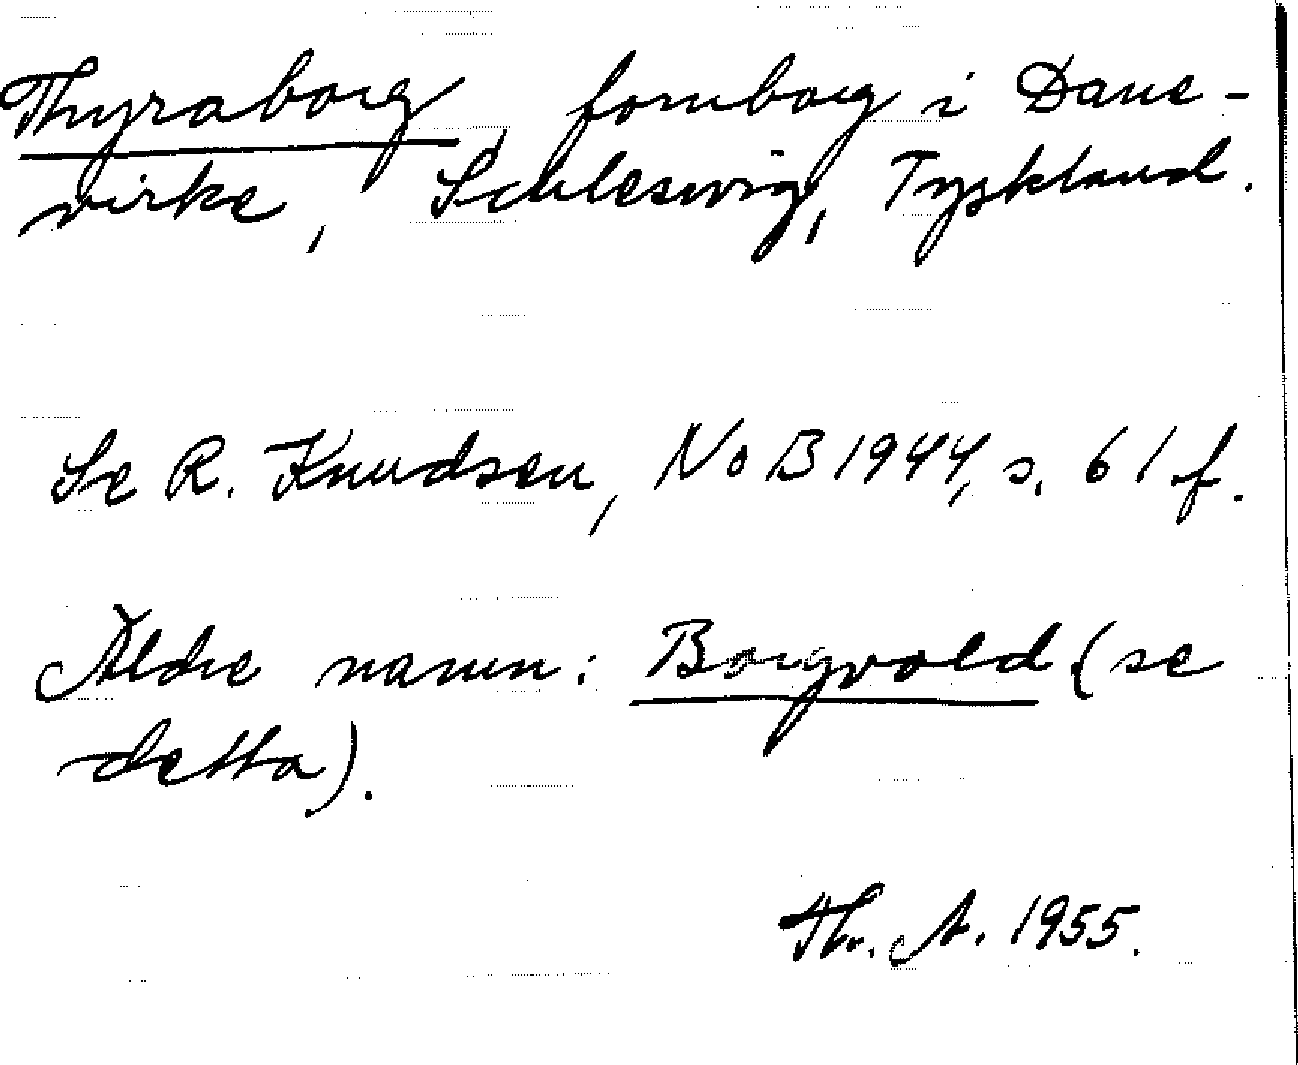 Thyraborg, fornborg i Dane-
virke, Schleswig, Tyskland.
Se R. Knudsen, NoB 1944, s. 61 f.
Äldre namn: Borgvold (se
detta).
Th. A. 1955.